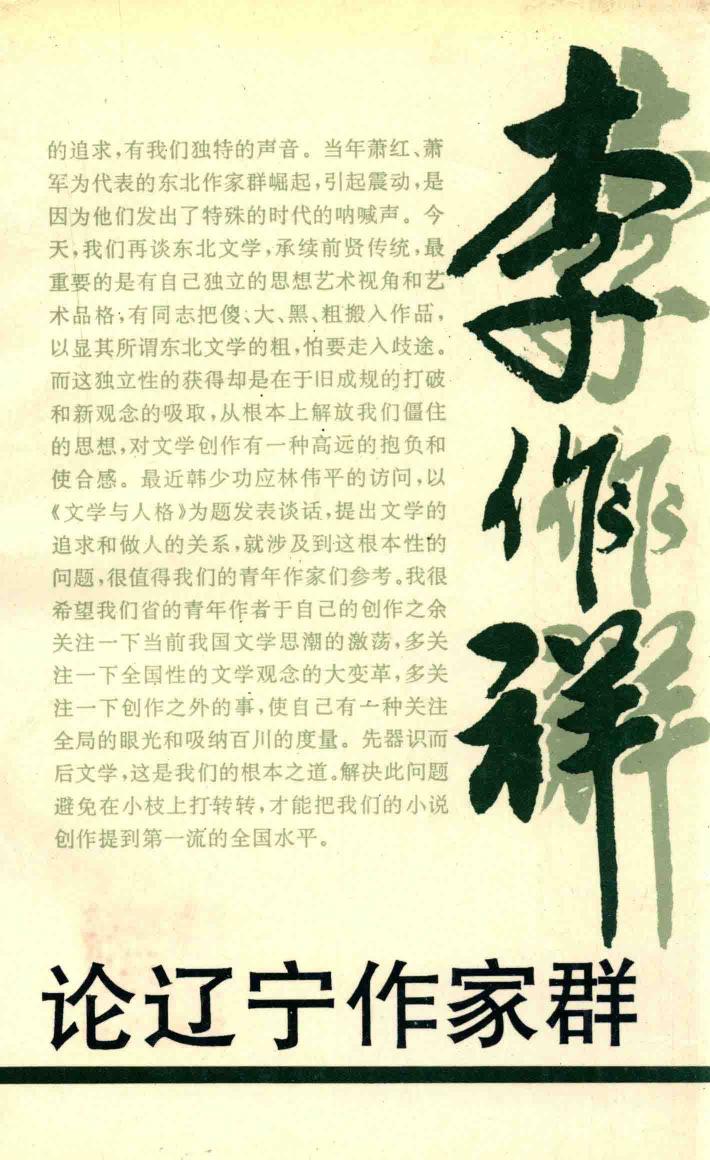 的追求,有我们独特的声音。当年萧红、萧
军为代表的东北作家群崛起,引起震动,是
因为他们发出了特殊的时代的呐喊声。今
天,我们再谈东北文学,承续前贤传统,最
重要的是有自己独立的思想艺术视角和艺
术品格,有同志把傻、大、黑、粗搬入作品,
以显其所谓东北文学的粗,怕要走入歧途。
而这独立性的获得却是在于旧成规的打破
和新观念的吸取,从根本上解放我们僵住
的思想,对文学创作有一种高远的抱负和
使合感。最近韩少功应林伟平的访问,以
《文学与人格》为题发表谈话,提出文学的
追求和做人的关系,就涉及到这根本性的
问题,很值得我们的青年作家们参考。我很
希望我们省的青年作者于自己的创作之余
关注一下当前我国文学思潮的激荡,多关
注一下全国性的文学观念的大变革,多关
注一下创作之外的事,使自己有一种关注
全局的眼光和吸纳百川的度量。先器识而
后文学,这是我们的根本之道。解决此问题
避免在小枝上打转转,才能把我们的小说
创作提到第一流的全国水平。
李作祥
论辽宁作家群